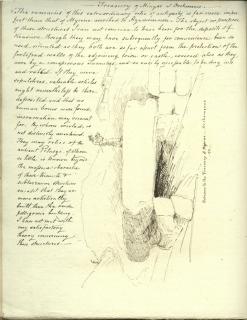 Treasury of Minyas at Orchomenos.
The remains of this extraordinary relic of antiquity is far more imper
fect than that of Mycenae ascribed to Agamemnon. The object or purpose
of these structures I can not conceive to have been for the deposits of
treasure though they may have subsequently for convenience been so
used, situated as they both are so far apart from the protection of the
fortified walls of the adjoining town or city, covered also as they
were by an conspicuous tumulus, and so easily susceptible to be dug into
and robbed. If they were
sepulchres, valuable articles
might nevertheless be there
deposited and that no
human bones were found
incremation may account
for. By whom invented is
not distinctly ascertained.
They may relics of the
ancient Pelasgi of whom
so little is known beyond
the massive character
of their
subterranean structures
except that they are
more activities they
built than they under
pelasgians building
I have not met with
any satisfactory
theory concerning
these structures.
Entrance to the Treasury of Minyas at Orchomenos